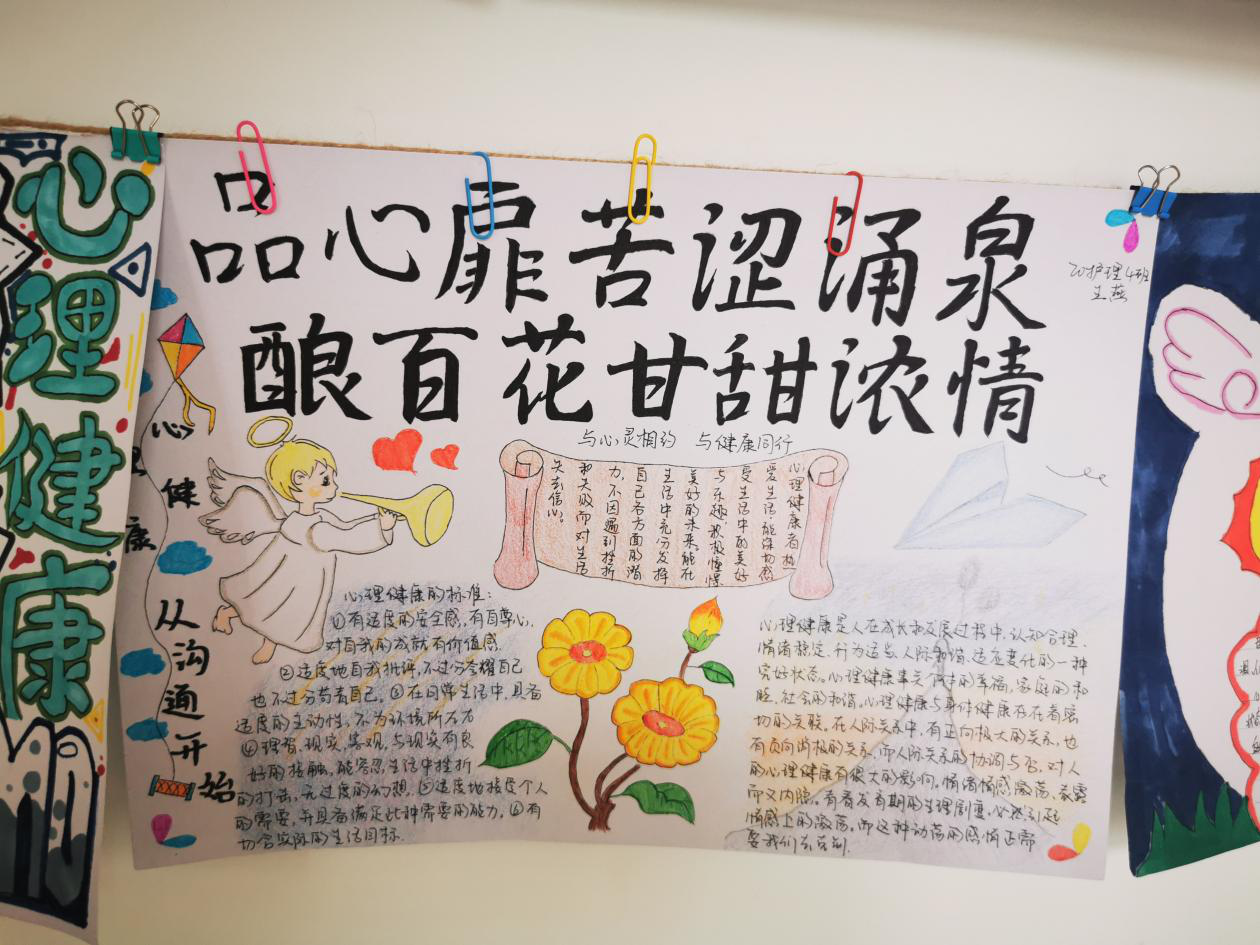 心理健康
品心扉苦涩涌泉
酿百花甘甜浓情
护理4班
与心灵相约 与健康同行
心理健康
从沟通开始
心理健康者热
爱生活,能深切感
受生活中的美好
与乐趣,积极憧憬
美好的未来。能在
生活中充分发挥
自己各方面的潜
力,不因遇到挫折
和失败而对生活
失去信心。
心理健康的标准:
①有适度的安全感,有自尊心,
对自我的成就有价值感。
②适度地自我批评,不过分夸耀自己
也不过分苛责自己。③在日常生活中,具备
适度的主动性,不为环境所左右
④理智,现实,客观,与现实有良
好的接触,能容忍生活中挫折
的打击,无过度的幻想。⑤适度地接受个人
的需要,并具备满足此种需要的能力。⑥有
切合实际的生活目标。
心理健康是人在成长和发展过程中,认知合理,
情绪稳定,行为适当,人际和谐,适应变化的一种
完好状态。心理健康事关个体的幸福,家庭的和
睦,社会的和谐。心理健康与身体健康存在着密
切的关联。在人际关系中,有正向积极的关系,也
有负向消极的关系,而人际关系的协调与否,对人
的心理健康有很大的影响。情绪情感激荡,表露
而又内隐。有着发育期的生理剧变,必然引起
情感上的激荡。而这种动荡的感情正需
要我们去克制.